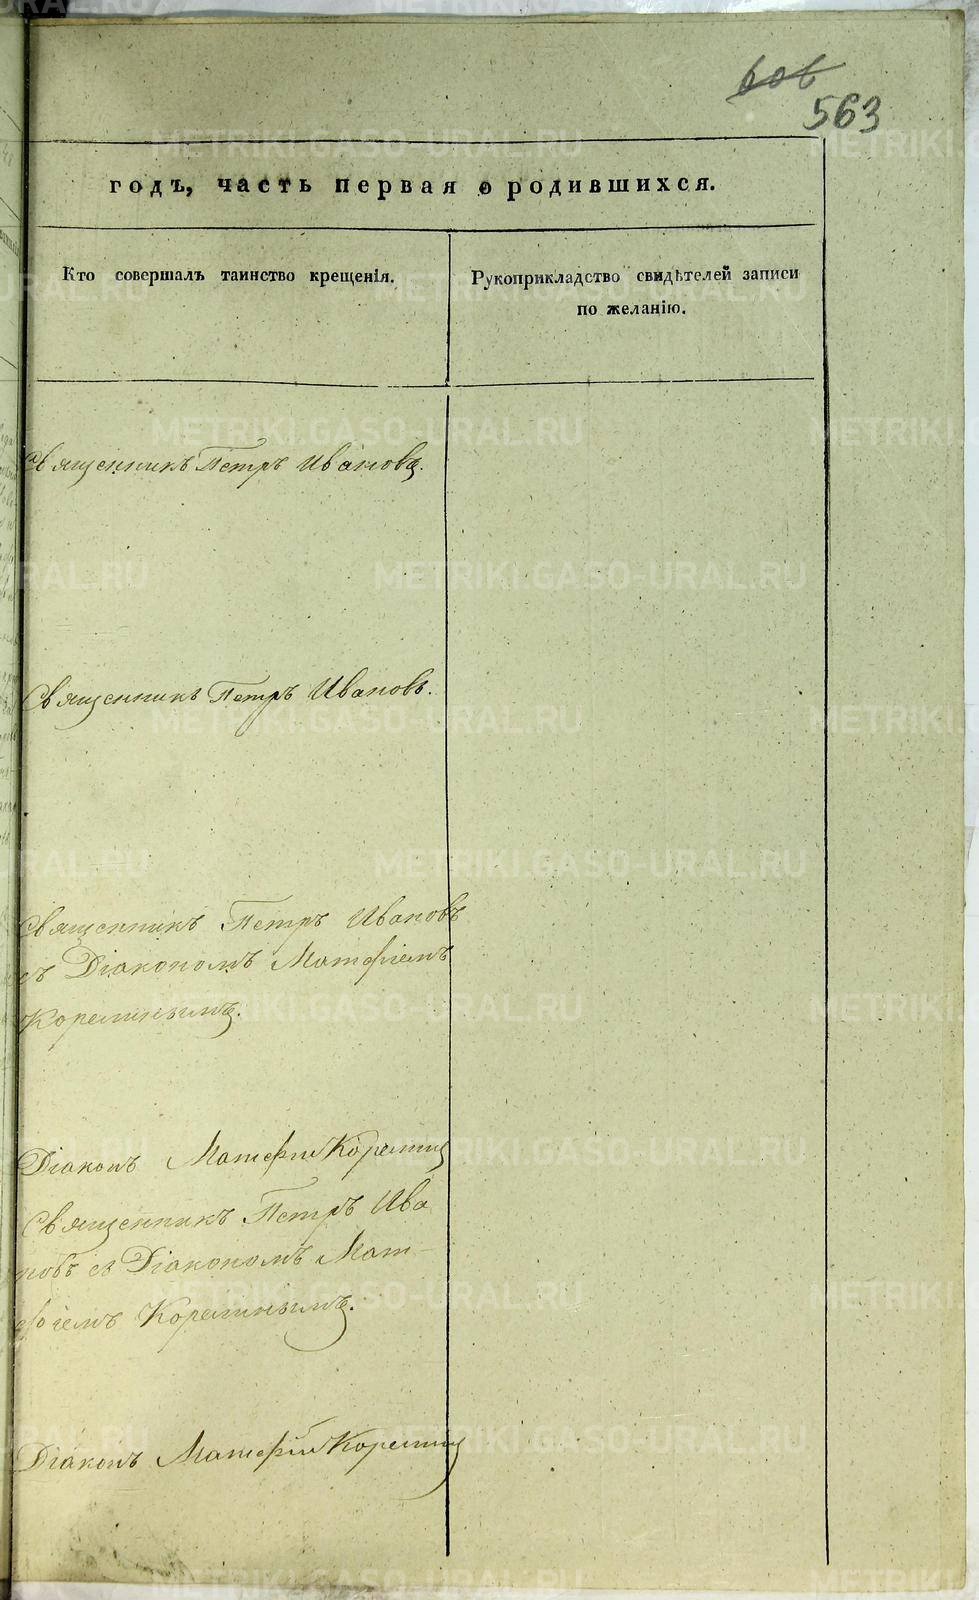 606
563
годъ, часть первая о родившихся.
Кто совершалъ таинство крещенія.
Рукоприкладство свидѣтелей записи
по желанію.
Священникъ Петръ Ивановъ.
Священникъ Петръ Ивановъ.
Священникъ Петръ Ивановъ
съ Діакономъ Матѳіемъ
Корелинымъ.
Діаконъ Матѳій Корелинъ
Священникъ Петръ Ива
новъ съ Діакономъ Мат-
ѳіемъ Корелинымъ.
Діаконъ Матѳій Корелинъ
METRIKI.GASO-URAL.RU